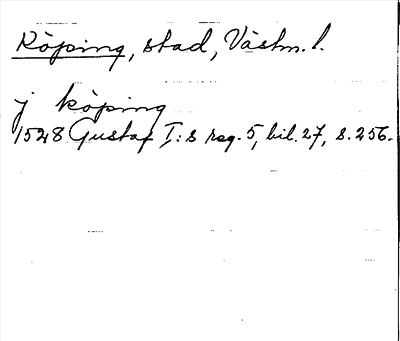 Köping, stad, Västm. l.
j köping
1528 Gustaf I:s reg. 5, bil. 27, s. 256.